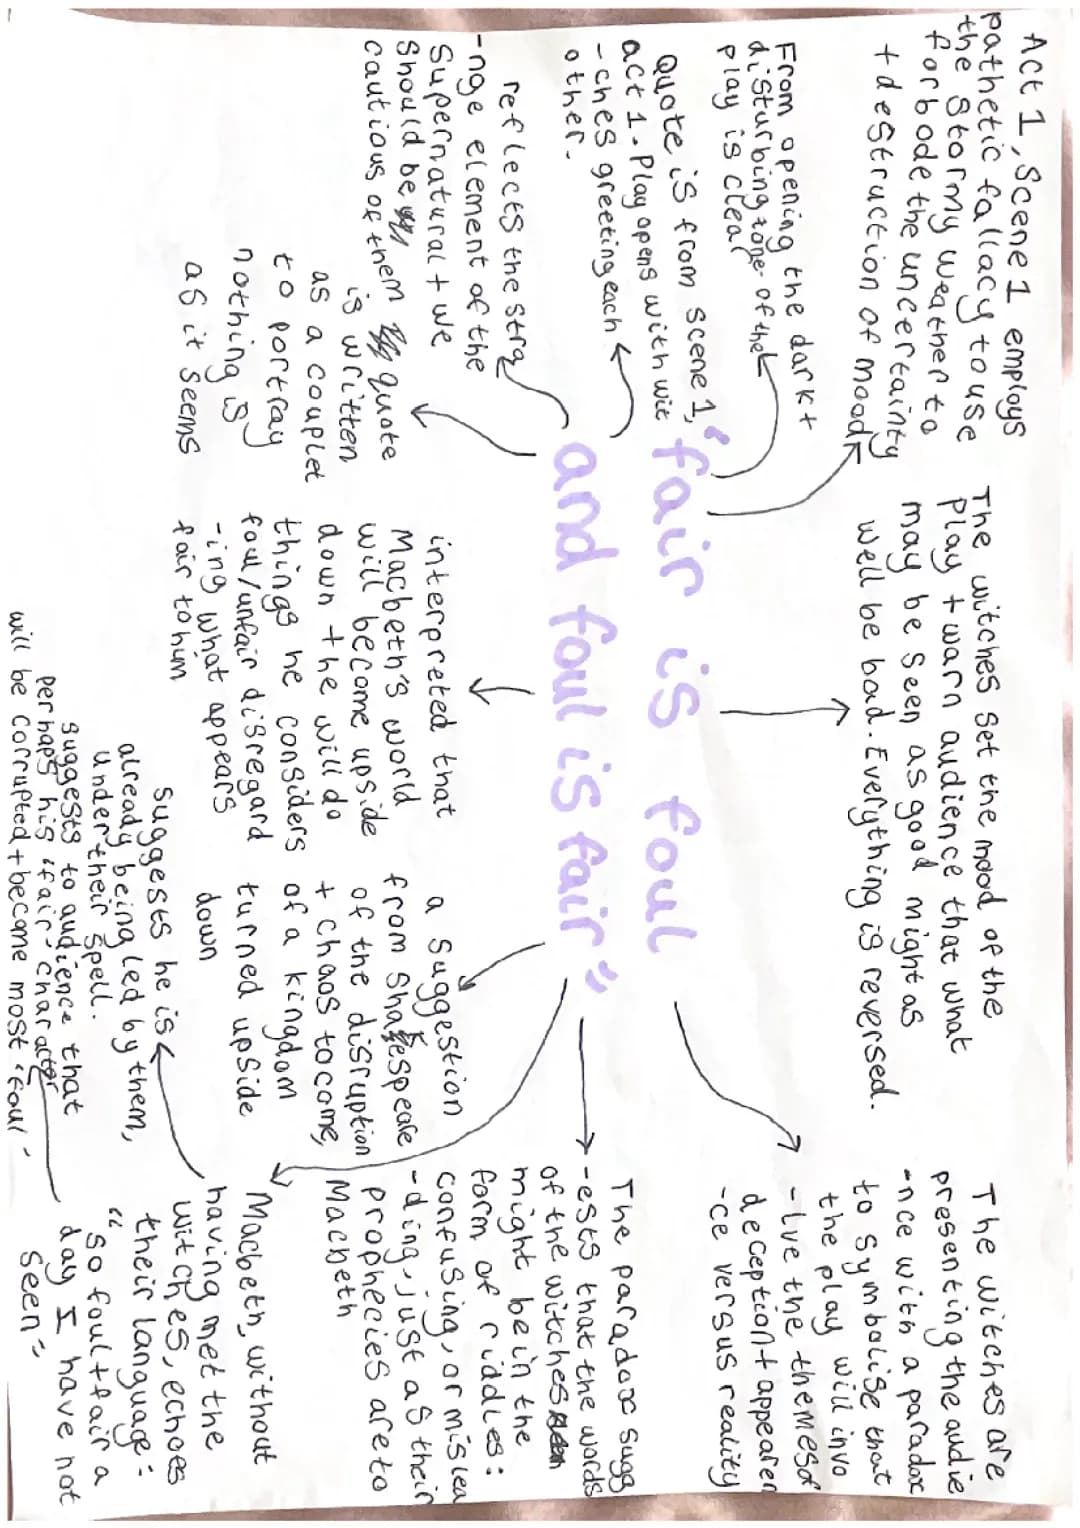 Act 1, Scene 1 employs
pathetic fallacy to use
the stormy weather to
forbode the uncertainty
+ destruction of mood
The witches set the mood of the
Play + warn audience that what
may be seen as good might as
well be bad. Everything is reversed.
The witches are
presenting the audie
-nce with a paradox
to symbolise that
the play will invo
-lve the themes of
deception + appearen
-ce versus reality
From opening the dark +
disturbing tone of the
play is clear
Quote is from scene 1,
act 1. Play opens with wit
-ches greeting each
other.
"fair is foul
and foul is fair"
reflects the stra
-nge element of the
Supernatural + we
Should be
cautious of them
quote
is written
as a couplet
to portray
nothing is
as it seems
interpreted that
Macbeth's world
will become upside
down + he will do
things he considers
foul/unfair disregard
-ing what appears
fair to him
a suggestion
from Shakespeare
of the disruption
+ chaos to come,
of a kingdom
turned upside
down
The paradox sugg
-ests that the words
of the witches
might be in the
form of riddles:
confusing, or mislea
-ding, just as their
prophecies are to
Macbeth
Macbeth, without
having met the
witches, echoes
their language:
"so foul + fair a
day I have not
seen"
Suggests he is
already being led by them,
under their spell.
suggests to audience that
perhaps his 'fair' character
will be corrupted + become most 'foul'